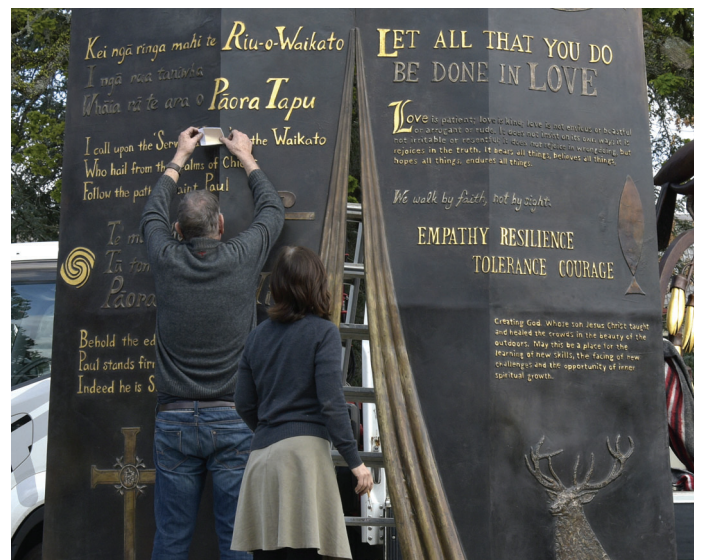 Kei ngā ringa mahi te Riu-o-Waikato
I ngā
Whāia rā te ara o Pāora Tapu
I call upon the the Waikato
Who hail from the realms of
Follow the Saint Paul
Te
Pāora
Behold the
Paul stands
Indeed he is
LET ALL THAT YOU DO
BE DONE IN LOVE
Love is patient; love is kind; love is not envious or boastful
or arrogant or rude. It does not insist on its own way; it is
not irritable or resentful; it does not rejoice in wrongdoing, but
rejoices in the truth. It bears all things, believes all things,
hopes all things, endures all things.
We walk by faith, not by sight.
EMPATHY RESILIENCE
TOLERANCE COURAGE
Creating God. Whose son Jesus Christ taught
and healed the crowds in the beauty of the
outdoors. May this be a place for the
learning of new skills, the facing of new
challenges and the opportunity of inner
spiritual growth.